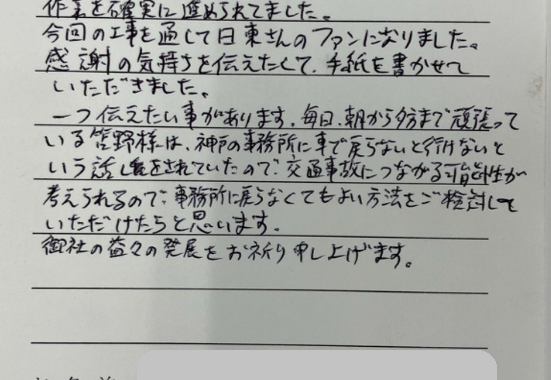 作業を確実に進められてました。
今回の工事を通して日東さんのファンになりました。
感謝の気持ちを伝えたくて、手紙を書かせて
いただきました。
一つ伝えたい事があります。毎日、朝から夕方まで頑張って
いる菅野様は、神戸の事務所に車で戻らないと行けないと
いう話しをされていたので、交通事故につながる可能性が
考えられるので、事務所に戻らなくてもよい方法をご検討して
いただけたらと思います。
御社の益々の発展をお祈り申し上げます。